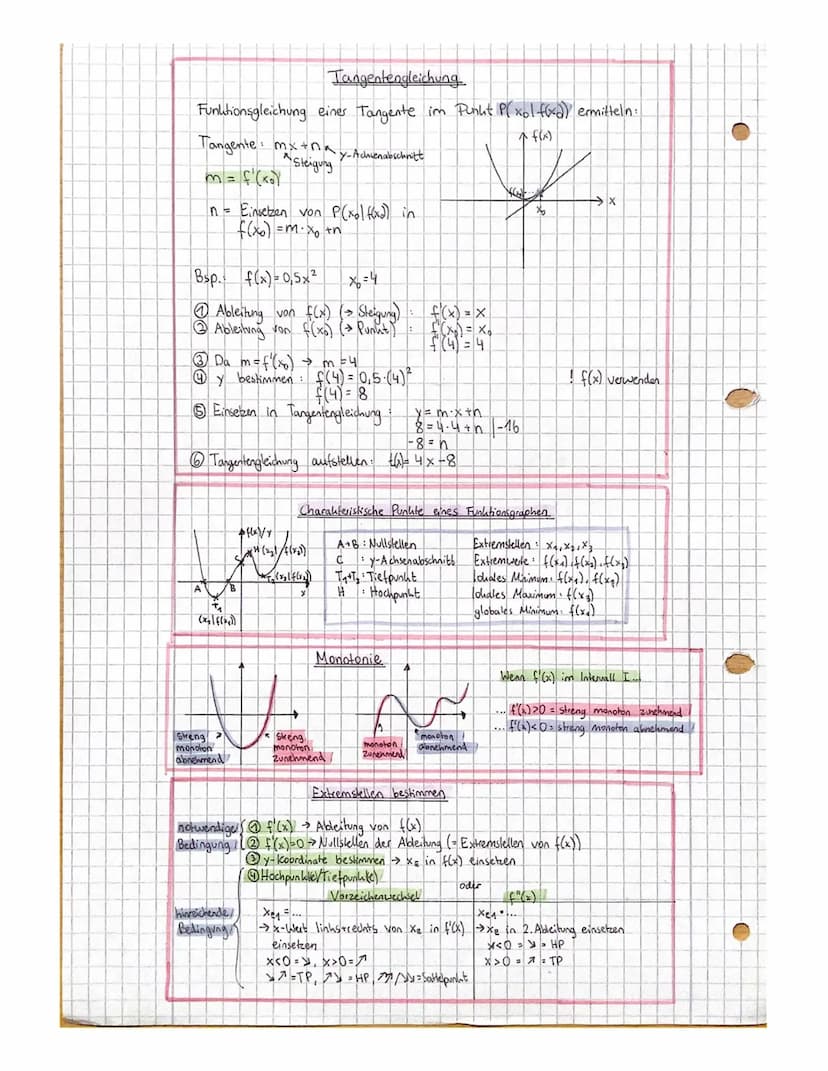 Tangentengleichung
Funktionsgleichung einer Tangente im Punkt P(x₀|f(x₀)) ermitteln:
Tangente: mx+n
Steigung
y-Achsenabschnitt
m = f'(x₀)
n = Einsetzen von P(x₀|f(x₀)) in
f(x₀) = m·x₀ +n
f(x)
f(x₀)
x₀
x
Bsp.: f(x) = 0,5x² x₀ = 4
① Ableitung von f(x) (→ Steigung) : f'(x) = x
② Ableitung von f(x₀) (→ Punkt) : f'(x₀) = x₀
f'(4) = 4
③ Da m = f'(x₀) → m = 4
④ y bestimmen : f(4) = 0,5·(4)² ! f(x) verwenden
f(4) = 8
⑤ Einsetzen in Tangentengleichung : y = m·x+n
8 = 4·4+n |-16
-8 = n
⑥ Tangentengleichung aufstellen: t(x) = 4x-8
Charakteristische Punkte eines Funktionsgraphen
f(x)/y
H(x₂|f(x₂))
C
T₂(x₃|f(x₃))
A
B
x
T₁
(x₁|f(x₁))
A+B : Nullstellen
C : y-Achsenabschnitt
T₁+T₂ : Tiefpunkt
H : Hochpunkt
Extremstellen : x₁, x₂, x₃
Extremwerte : f(x₁), f(x₂), f(x₃)
lokales Minimum : f(x₁), f(x₃)
lokales Maximum : f(x₂)
globales Minimum: f(x₁)
Monotonie
streng
monoton
abnehmend
streng
monoton
zunehmend
monoton
zunehmend
monoton
abnehmend
Wenn f'(x) im Intervall I...
... f'(x)>0 = streng monoton zunehmend
... f'(x)<0 = streng monoton abnehmend
Extremstellen bestimmen
notwendige
Bedingung
① f'(x) → Ableitung von f(x)
② f'(x)=0 → Nullstellen der Ableitung (= Extremstellen von f(x))
③ y-Koordinate bestimmen → xE in f(x) einsetzen
④ Hochpunkt(e)/Tiefpunkt(e)
hinreichende
Bedingung
Vorzeichenwechsel
oder
f''(x)
xE1 = ...
→ x-Wert links+rechts von xE in f'(x)
einsetzen
x<0 = ↘, x>0 = ↗
↘↗ = TP, ↗↘ = HP, ↗↗/↘↘ = Sattelpunkt
xE1 = ...
→ xE in 2. Ableitung einsetzen
x<0 = ↘ = HP
x>0 = ↗ = TP